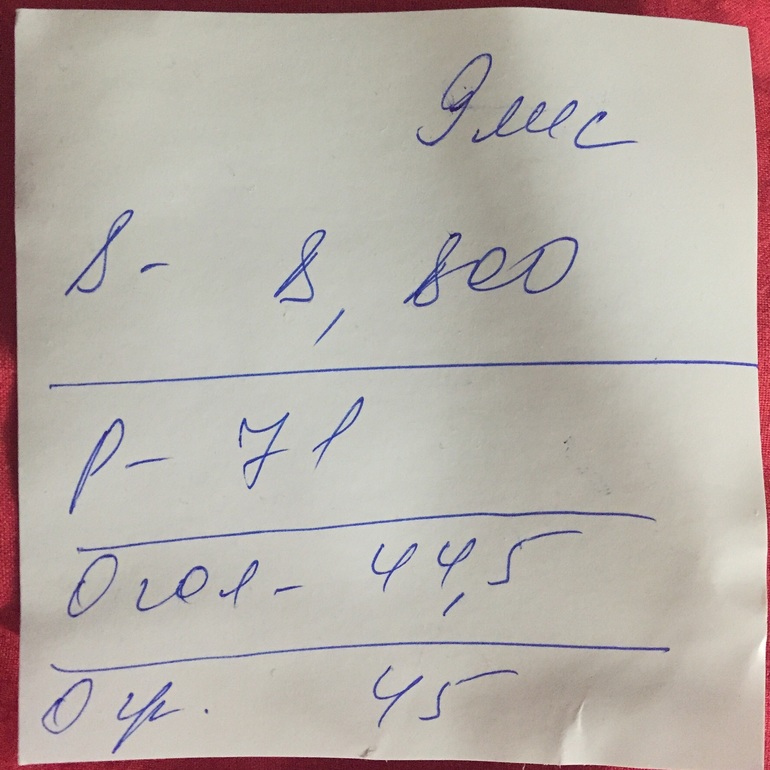 9 мес
В - 8, 800
Р - 71
О гол - 44,5
О гр. 45